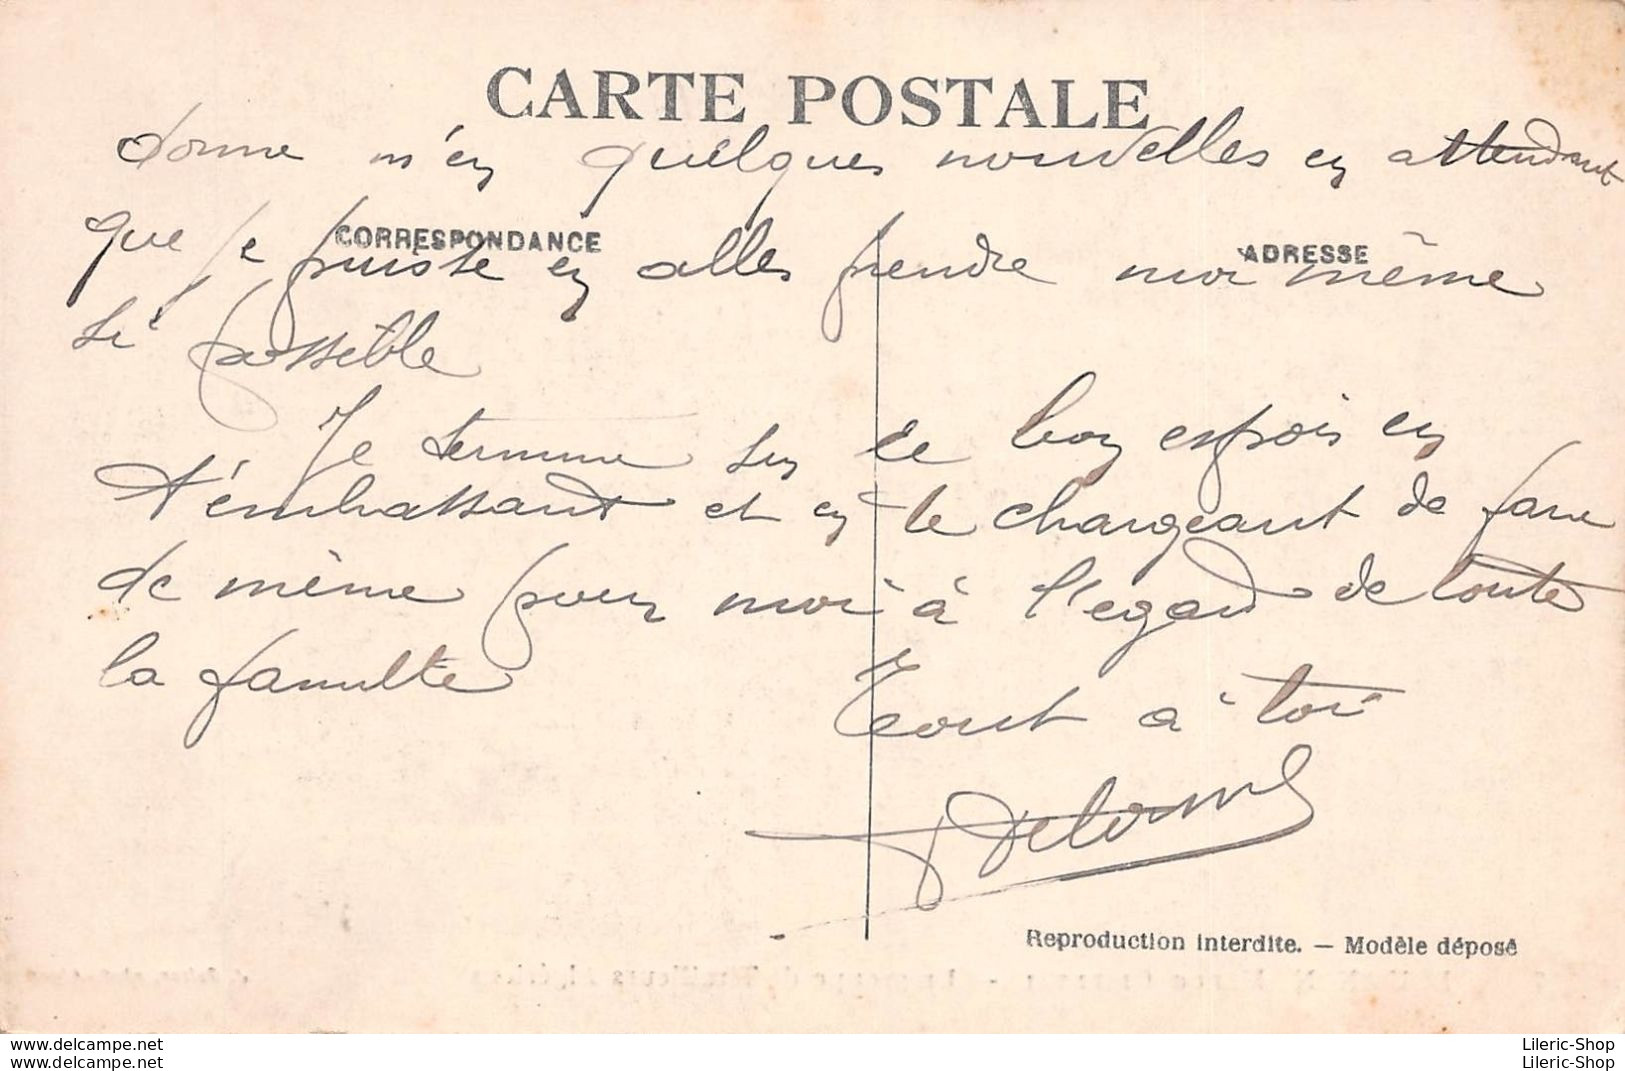 CARTE POSTALE
donne m'en quelques nouvelles en attendant
CORRESPONDANCE
ADRESSE
que je puisse en aller prendre moi même
si possible
Je termine sur ce bon espoir en
t'embrassant et en te chargeant de faire
de même pour moi à l'egard de toute
la famille
Tout à toi
Delorme
Reproduction interdite. — Modèle déposé
www.delcampe.net
www.delcampe.net
Lileric-Shop
Lileric-Shop